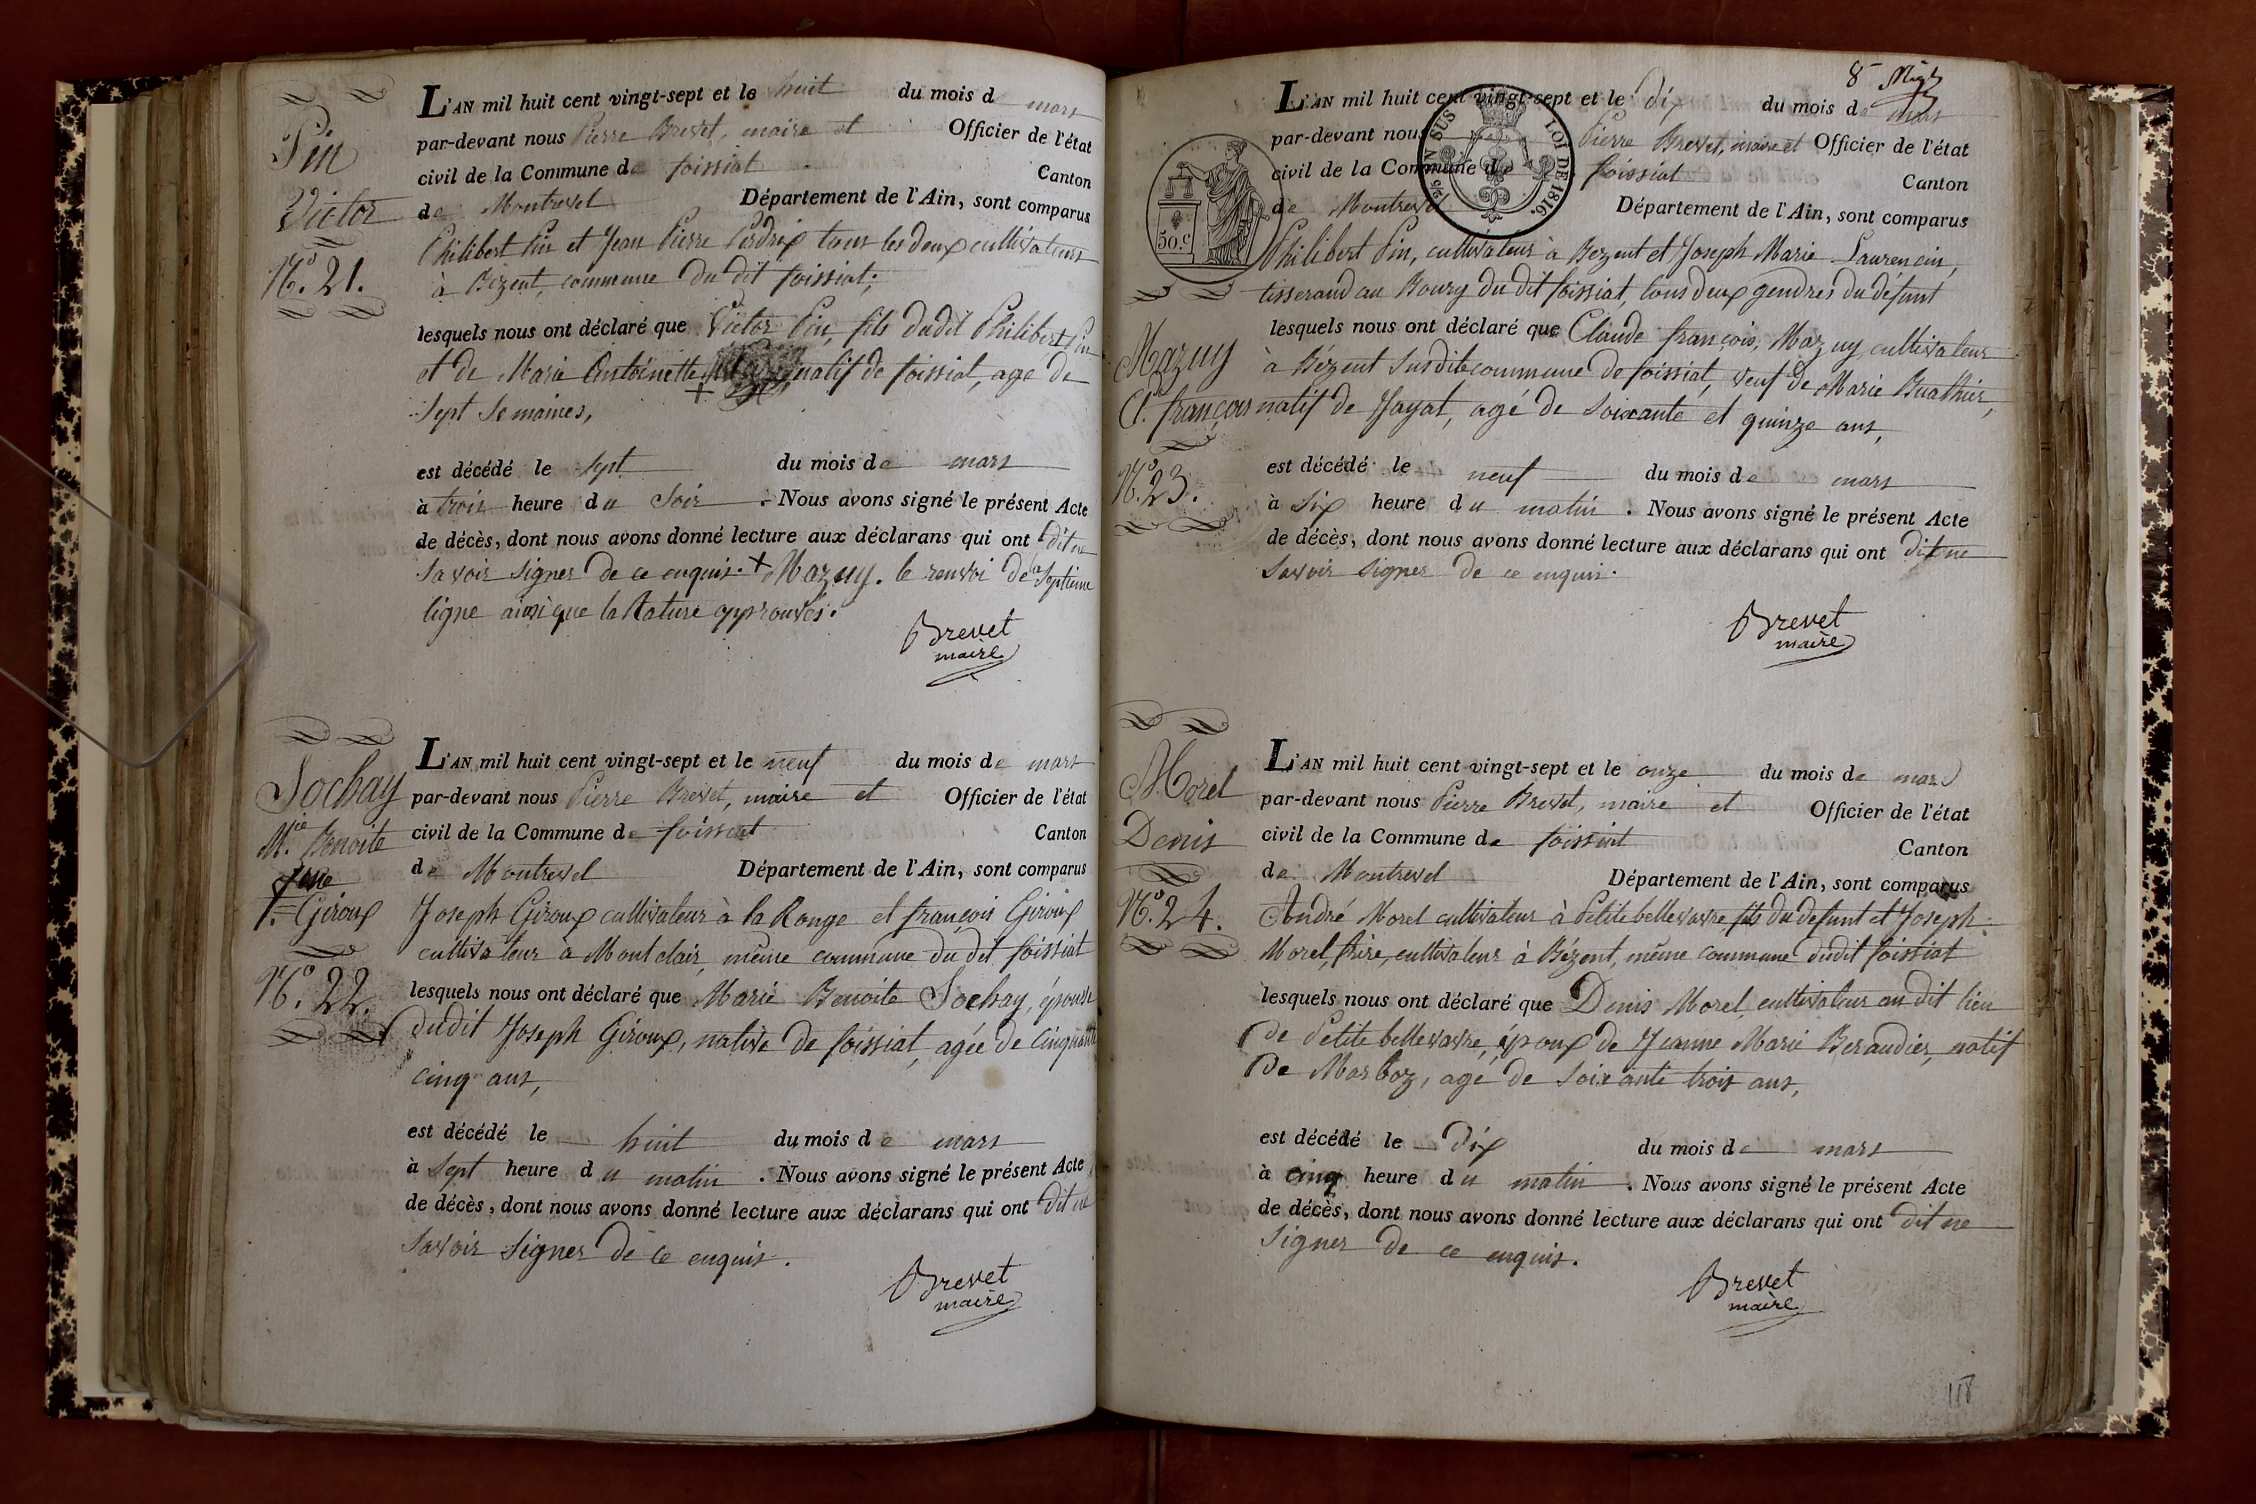 Pin
Victor
N.° 21.
L'AN mil huit cent vingt-sept et le huit du mois de mars
par-devant nous Pierre Brevet, maire et Officier de l'état
civil de la Commune de foissiat Canton
de Montrevel Département de l'Ain, sont comparus
Philibert Pin et Jean Pierre Perdrix tous les deux cultivateurs
à Bézent, commune du dit foissiat;
lesquels nous ont déclaré que Victor Pin, fils dudit Philibert Pin
et de Marie Antoinette + natif de foissiat, agé de
sept semaines,
est décédé le sept du mois de mars
à trois heure du soir. Nous avons signé le présent Acte
de décès, dont nous avons donné lecture aux déclarans qui ont dit ne
savoir signer de ce enquis. + Mazuy. le renvoi de la septieme
ligne ainsi que la Rature approuvés.
Brevet
maire
Sochay
M.ie Benoite
f.e Giroux
N.° 22.
L'AN mil huit cent vingt-sept et le neuf du mois de mars
par-devant nous Pierre Brevet, maire et Officier de l'état
civil de la Commune de foissiat Canton
de Montrevel Département de l'Ain, sont comparus
Joseph Giroux cultivateur à la Ronge et françois Giroux
cultivateur à Montclair, même commune du dit foissiat
lesquels nous ont déclaré que Marie Benoite Sochay, épouse
dudit Joseph Giroux, native de foissiat, agée de cinquante
cinq ans,
est décédé le huit du mois de mars
à sept heure du matin. Nous avons signé le présent Acte
de décès, dont nous avons donné lecture aux déclarans qui ont dit ne
savoir signer de ce enquis.
Brevet
maire
8
SUS
LOI DE 1816.
50.c
Mazuy
Cl. françois
N.° 23.
L'AN mil huit cent vingt-sept et le dix du mois de mars
par-devant nous Pierre Brevet, maire et Officier de l'état
civil de la Commune de foissiat Canton
de Montrevel Département de l'Ain, sont comparus
Philibert Pin, cultivateur à Bezent et Joseph Marie Laurencin,
tisserand au Bourg du dit foissiat, tous deux gendres du défunt
lesquels nous ont déclaré que Claude françois Mazuy cultivateur
à Bézent susdite commune de foissiat, veuf de Marie Buathier,
natif de Jayat, agé de soixante et quinze ans,
est décédé le neuf du mois de mars
à six heure du matin. Nous avons signé le présent Acte
de décès, dont nous avons donné lecture aux déclarans qui ont dit ne
savoir signer de ce enquis.
Brevet
maire
Morel
Denis
N.° 24.
L'AN mil huit cent vingt-sept et le onze du mois de mars
par-devant nous Pierre Brevet, maire et Officier de l'état
civil de la Commune de foissiat Canton
de Montrevel Département de l'Ain, sont comparus
André Morel cultivateur à Petite bellevavre, fils du defunt et Joseph
Morel, frère, cultivateur à Bézent, même commune dudit foissiat
lesquels nous ont déclaré que Denis Morel, cultivateur au dit lieu
de Petite bellevavre, époux de Jeanne Marie Beraudier, natif
de Marboz, agé de soixante trois ans,
est décédé le dix du mois de mars
à cinq heure du matin. Nous avons signé le présent Acte
de décès, dont nous avons donné lecture aux déclarans qui ont dit ne
signer de ce enquis.
Brevet
maire
118